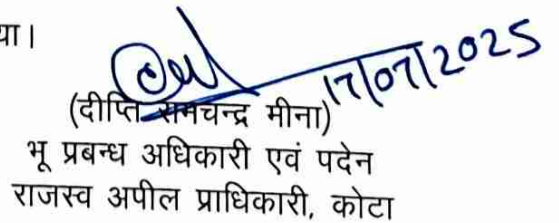 या।
17/07/2025
(दीप्ति रामचन्द्र मीना)
भू प्रबन्ध अधिकारी एवं पदेन
राजस्व अपील प्राधिकारी, कोटा